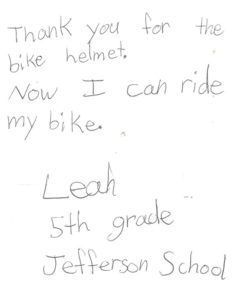 Thank you for the
bike helmet.
Now I can ride
my bike.
Leah
5th grade
Jefferson School